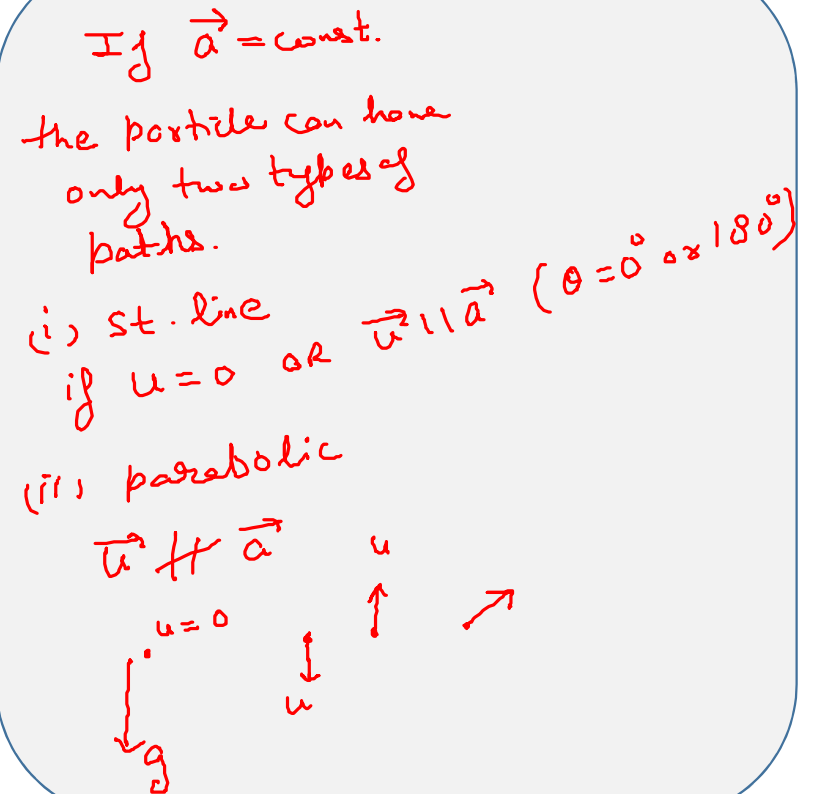 If a⃗ = const.
the particle can have
only two types of
paths.
(i) st. line
if u = 0 OR u⃗ || a⃗ (θ = 0° or 180°)
(ii) parabolic
u⃗ ∦ a⃗
u
u = 0
u
g